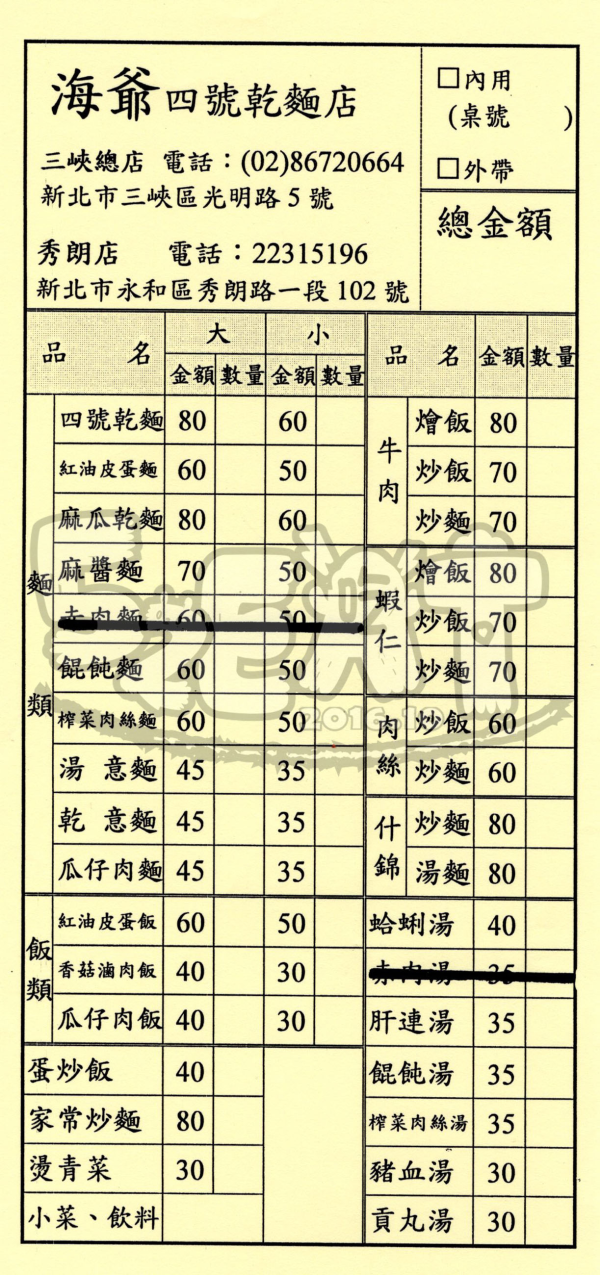 海爺四號乾麵店
三峽總店 電話：(02)86720664
新北市三峽區光明路5號
秀朗店 電話：22315196
新北市永和區秀朗路一段102號
□內用
(桌號 )
□外帶
總金額
品 名 大 小
金額 數量 金額 數量
麵類
四號乾麵 80 60
紅油皮蛋麵 60 50
麻瓜乾麵 80 60
麻醬麵 70 50
赤肉麵 60 50
餛飩麵 60 50
榨菜肉絲麵 60 50
湯 意麵 45 35
乾 意麵 45 35
瓜仔肉麵 45 35
飯類
紅油皮蛋飯 60 50
香菇滷肉飯 40 30
瓜仔肉飯 40 30
蛋炒飯 40
家常炒麵 80
燙青菜 30
小菜、飲料
品 名 金額 數量
牛肉
燴飯 80
炒飯 70
炒麵 70
蝦仁
燴飯 80
炒飯 70
炒麵 70
肉絲
炒飯 60
炒麵 60
什錦
炒麵 80
湯麵 80
蛤蜊湯 40
赤肉湯 35
肝連湯 35
餛飩湯 35
榨菜肉絲湯 35
豬血湯 30
貢丸湯 30